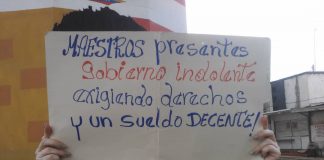 MAESTROS presentes
Gobierno indolente
exigiendo derechos
y un sueldo DECENTE!